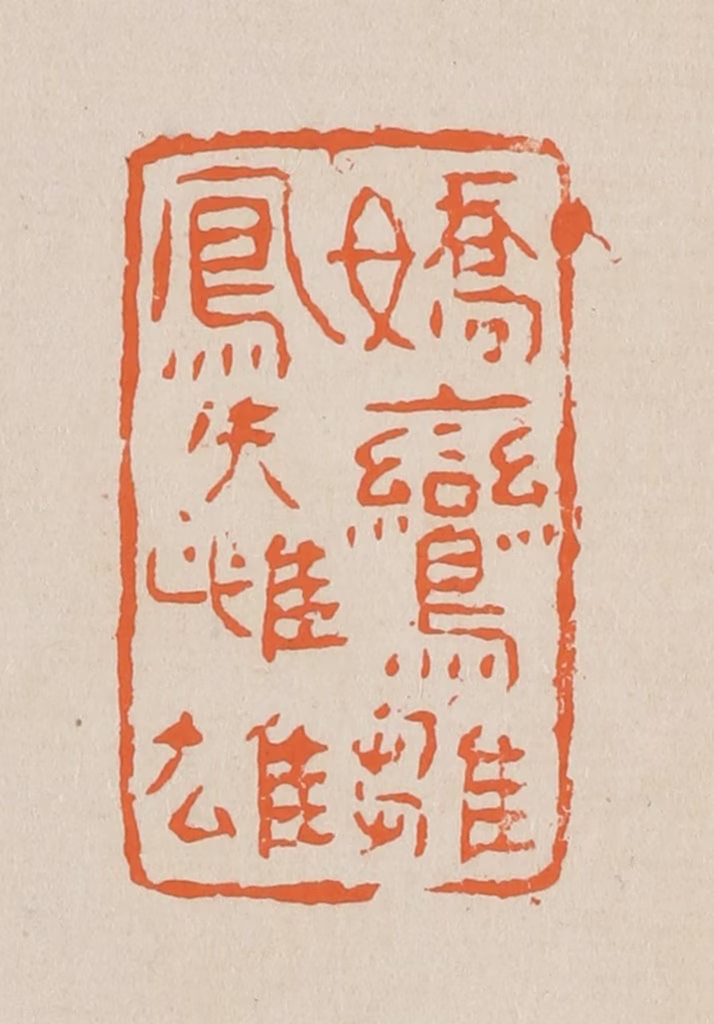 嬌鸞雛
鳳失雌雄